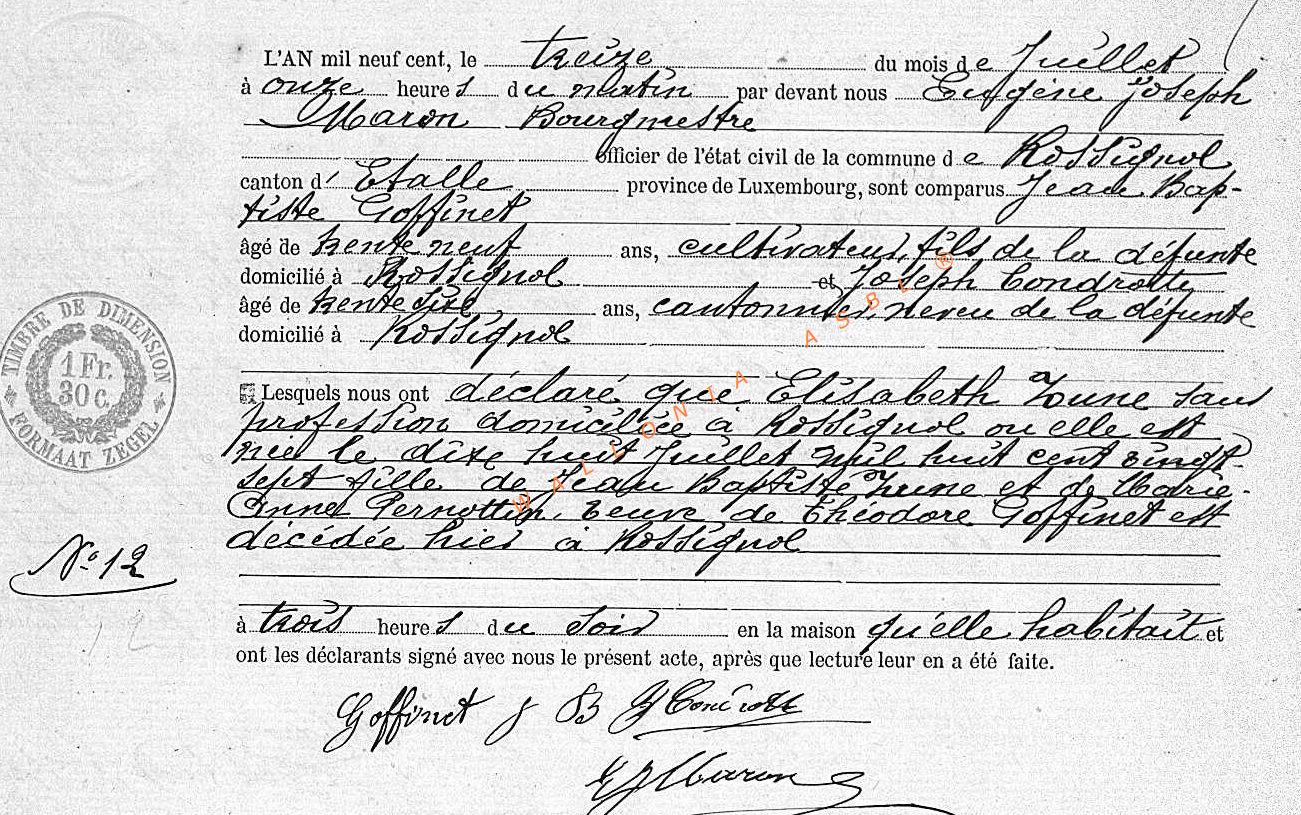 L'AN mil neuf cent, le treize du mois de Juillet
à onze heures du matin par devant nous Eugène Joseph
Maron Bourgmestre
officier de l'état civil de la commune de Rossignol
canton d'Etalle province de Luxembourg, sont comparus Jean Bap-
tiste Goffinet
âgé de trente neuf ans, cultivateur, fils de la défunte
domicilié à Rossignol et Joseph Condrotte
âgé de trente six ans, cantonnier, neveu de la défunte
domicilié à Rossignol
Lesquels nous ont déclaré que Elisabeth Zune sans
profession domiciliée à Rossignol ou elle est
née le dix huit Juillet mil huit cent vingt-
sept fille de Jean Baptiste Zune et de Marie-
Anne Pernottin, veuve de Théodore Goffinet est
décédée hier à Rossignol
N° 12
12
à trois heures du soir en la maison qu'elle habitait et
ont les déclarants signé avec nous le présent acte, après que lecture leur en a été faite.
Goffinet J B J Condrotte
EJMaron
TIMBRE DE DIMENSION
1 Fr.
30 c.
FORMAAT ZEGEL
WALLONIA ASBL ©